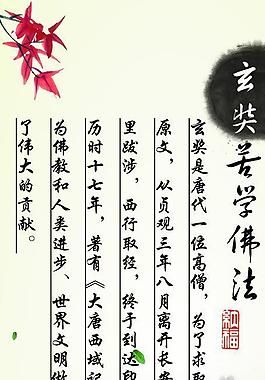 玄奘苦学佛法
納福
玄奘是唐代一位高僧，为了求取
原文，从贞观三年八月离开长安
里跋涉，西行取经，终于到达印
历时十七年，著有《大唐西域记
为佛教和人类进步、世界文明做
了伟大的贡献。